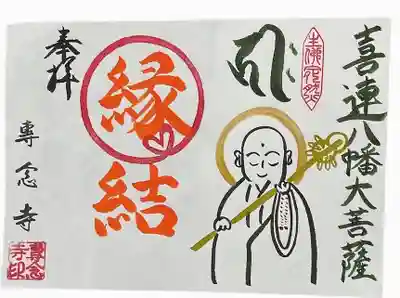 喜連八幡大菩薩
縁結
奉拝
專念寺
專念
寺印